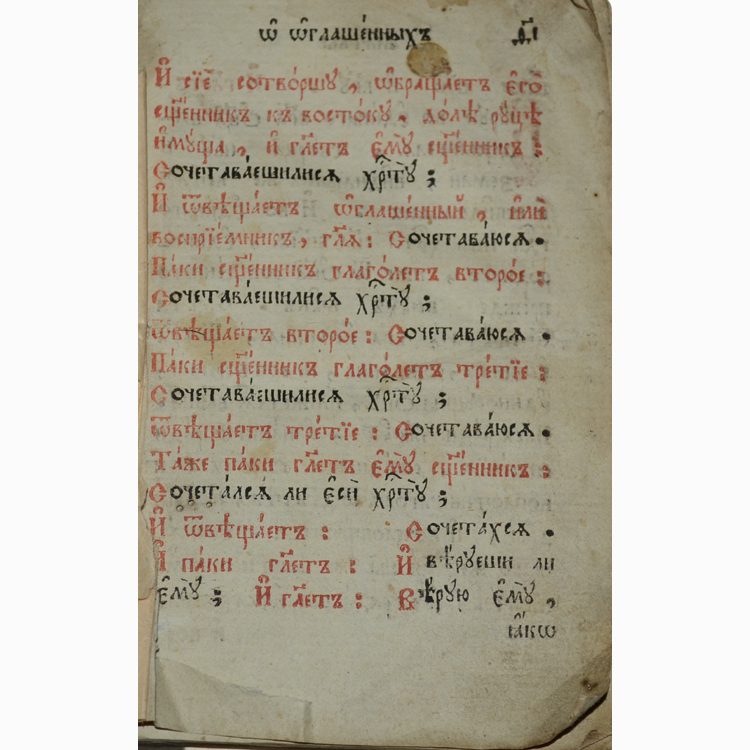 Ѡ҆ ѡ҆глаше́нныхъ д҃і
И҆ сїѐ сотво́ршꙋ, ѡ҆браща́етъ є҆го̀
сщ҃е́нникъ къ восто́кꙋ, до́лѣ рꙋ́цѣ
и҆мꙋ́ща, и҆ гл҃етъ є҆мꙋ̀ сщ҃е́нникъ:
Сочетава́ешилисѧ хрⷭ҇тꙋ̀;
И҆ ѿвѣща́етъ ѡ҆глаше́нный, и҆лѝ
воспрїе́мникъ, гл҃ѧ: Сочетава́юсѧ.
Па́ки сщ҃е́нникъ глаго́летъ второ́е:
Сочетава́ешилисѧ хрⷭ҇тꙋ̀;
ѿвѣща́етъ второ́е: Сочетава́юсѧ.
Па́ки сщ҃е́нникъ глаго́летъ тре́тїе:
Сочетава́ешилисѧ хрⷭ҇тꙋ̀;
ѿвѣща́етъ тре́тїе: Сочетава́юсѧ.
Та́же па́ки гл҃етъ є҆мꙋ̀ сщ҃е́нникъ:
Сочета́лсѧ ли є҆сѝ хрⷭ҇тꙋ̀;
И҆ ѿвѣща́етъ: Сочета́хсѧ.
И҆ па́ки гл҃етъ: И҆ вѣ́рꙋеши ли
є҆мꙋ̀; И҆ гл҃етъ: Вѣ́рꙋю є҆мꙋ̀,
ꙗ҆́кѡ